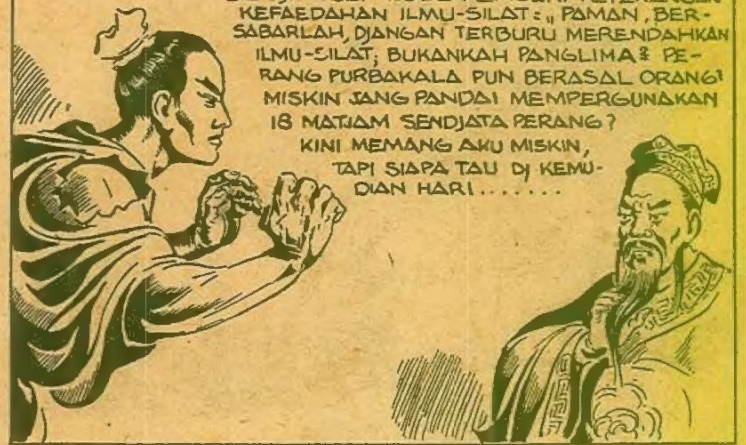 MEMBERI KETERANGAN
KEFAEDAHAN ILMU-SILAT: „ PAMAN, BER-
SABARLAH, DJANGAN TERBURU MERENDAHKAN
ILMU-SILAT; BUKANKAH PANGLIMA² PE-
RANG PURBAKALA PUN BERASAL ORANG²
MISKIN JANG PANDAI MEMPERGUNAKAN
18 MATJAM SENDJATA PERANG?
KINI MEMANG AKU MISKIN,
TAPI SIAPA TAU DI KEMU-
DIAN HARI .......